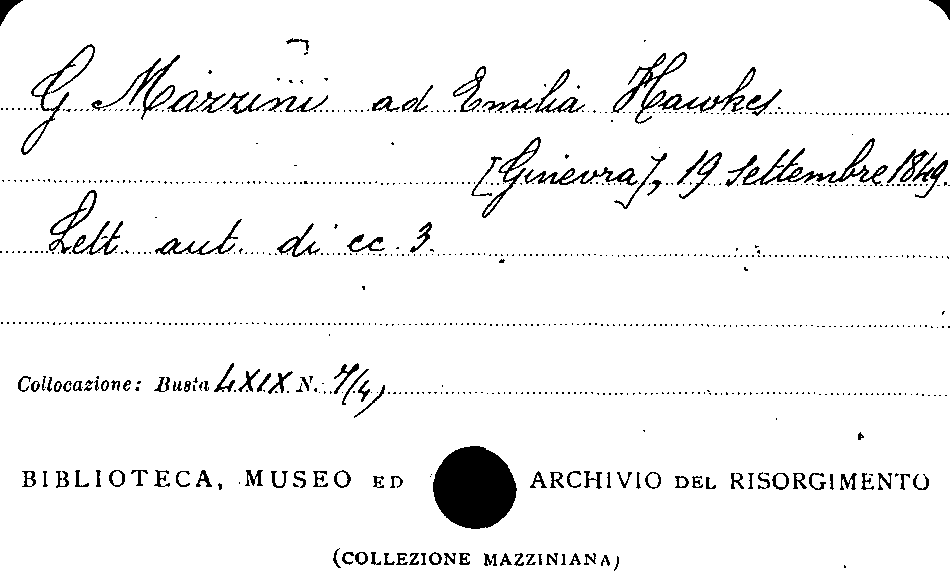 G Mazzini ad Emilia Hawkes
[Ginevra], 19 Settembre 1849.
Lett. aut. di cc. 3.
Collocazione: Busta LXIX N. 7/4)
BIBLIOTECA, MUSEO ED ARCHIVIO DEL RISORGIMENTO
(COLLEZIONE MAZZINIANA)